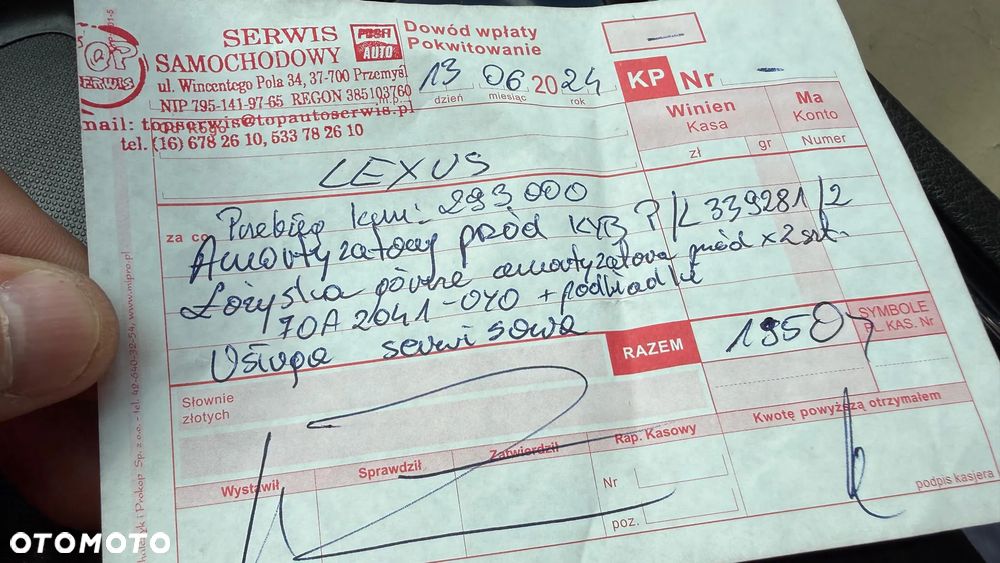 SERWIS
SAMOCHODOWY
ul. Wincentego Pola 34, 37-700 Przemyśl
NIP 795-141-97-65 REGON 385103760
mail: topserwis@topautoserwis.pl
tel. (16) 678 26 10, 533 78 26 10
TOP
SERWIS
AUTO
Dowód wpłaty
Pokwitowanie
13 06 2024
dzień miesiąc rok
m.p.
KP Nr -
Winien
Kasa
Ma
Konto
zł gr Numer
LEXUS
za co Przebieg km: 293 000
Amortyzatory przód KYB P/L 339281/2
Łożyska górne amortyzatora przód x 2 szt.
70A2041-040 + podkładki
Usługa serwisowa
RAZEM 1950,-
SYMBOLE
PL. KAS. Nr
Słownie
złotych
Wystawił
Sprawdził
Zatwierdził
Rap. Kasowy
Nr
poz.
Kwotę powyższą otrzymałem
podpis kasjera
www.mipro.pl
OTOMOTO